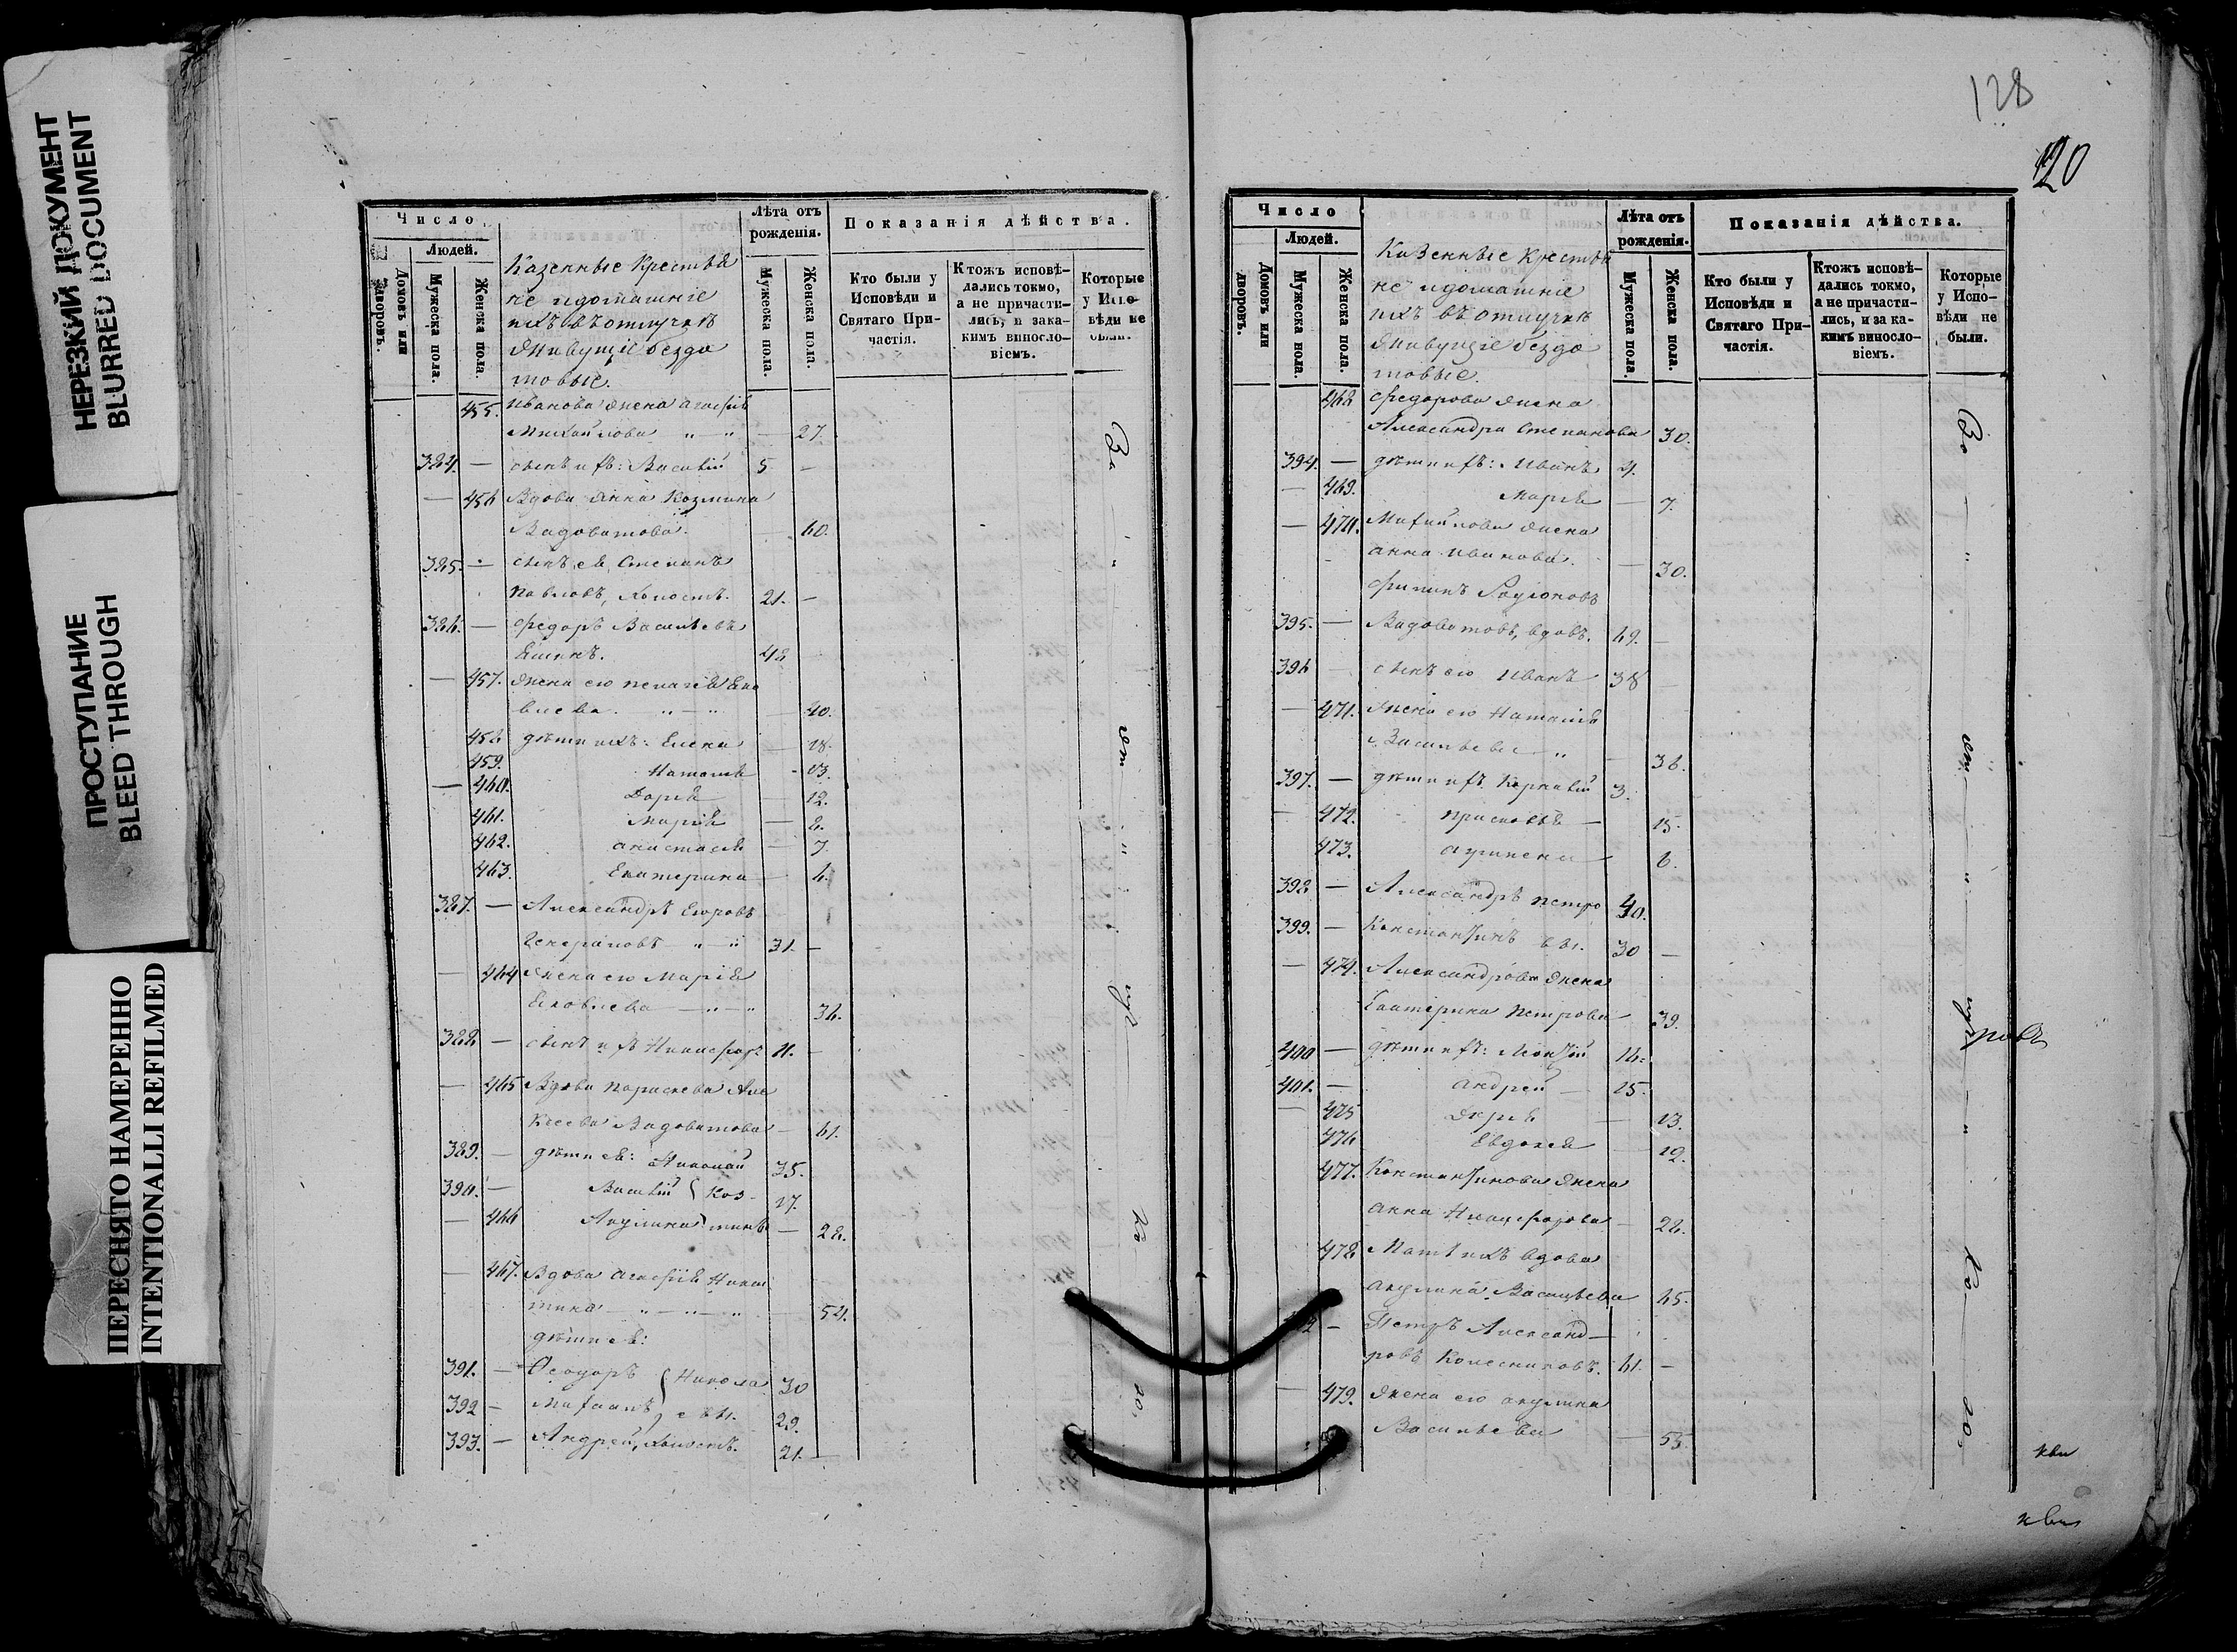 НЕРЕЗКИЙ ДОКУМЕНТ
BLURRED DOCUMENT
ПРОСТУПАНИЕ
BLEED THROUGH
ПЕРЕСНЯТО НАМЕРЕННО
INTENTIONALLI REFILMED
Число
Людей.
Домовъ или дворовъ.
Мужеска пола.
Женска пола.
Казенные Крестья
не и домашніе
ихъ въ отлучкѣ
живущіе бездо
мовые.
Лѣта отъ рожденія.
Мужеска пола.
Женска пола.
Показанія дѣйства.
Кто были у Исповѣди и Святаго Причастія.
Ктожъ исповѣдались токмо, а не причастились, и за какимъ винословіемъ.
Которые у Исповѣди не были.
455. Иванова жена Агафія
Михайлова " — " — 27.
384. — сынъ ихъ: Василій 5 —
— 456 Вдова Анна Козмина
60.
385. — сынъ ея Степанъ
Павловъ, холостъ. 21. —
386. — Федоръ Васильевъ
48
— 457. жена его Пелагея
" — " 40.
458 дѣти ихъ: Елена — 18.
459. Наталья - 13.
— 460. Дарья — 12.
461. Марія — 8.
462. Анастасія — 7.
463. Екатерина — 6.
387. — Александръ Егоровъ
" — " 31. —
— 464 жена его Марія
Яковлева — " — " 36.
388 — сынъ ихъ Никифоръ 11. —
— 465 Вдова Параскева Але
ксеева — 61.
389. — дѣти ея: Николай 35.
390. — Василій Коз- 17.
— 466 Акулина мины — 28.
— 467. Вдова Агафія Ники
тина — " — " — " 54.
дѣти ея:
391. — Ѳеодоръ Никола 30
392 — Михаилъ евы. 29.
393. — Андрей, холостъ. 21. —
За
отлуч
кою.
128
120
Число
Людей.
Домовъ или дворовъ.
Мужеска пола.
Женска пола.
Казенные Крестья
не и домашніе
ихъ въ отлучкѣ
живущіе бездо
мовые.
Лѣта отъ рожденія.
Мужеска пола.
Женска пола.
Показанія дѣйства.
Кто были у Исповѣди и Святаго Причастія.
Ктожъ исповѣдались токмо, а не причастились, и за какимъ винословіемъ.
Которые у Исповѣди не были.
468 Федорова жена
Александра Степанова 30.
394. — дѣти ихъ: Иванъ 4.
— 469. Марія — 7.
— 470. Михайлова жена
Анна Иванова. — 30.
Филипъ Родіоновъ
395. — вдовъ. 69. —
396 — сынъ его Иванъ 38 —
— 471. жена его Наталья
Васильева — " 36.
397. — дѣти ихъ 3.
— 472. Прасковья — 15.
473. 6.
398 — Александръ Петро 40.
399. — Константинъ вы. 30 —
— 474. Александрова жена
Екатерина Петрова 39.
400 — дѣти ихъ: 16.
401. — Андрей — 15.
— 475 Дарья — 13.
476 Евдокія 12.
477. Константинова жена
Анна Никифорова — 28.
478 Мать ихъ вдова
Акулина Васильева 65.
— Петръ Александ-
ровъ Колесниковъ. 61. —
— 479. жена его Акулина
Васильева — 55.
За
отлуч
кою.
ровъ